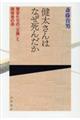 斎藤貴男
健太さんは
なぜ死んだか
警官たちの「正義」と
障害者の命